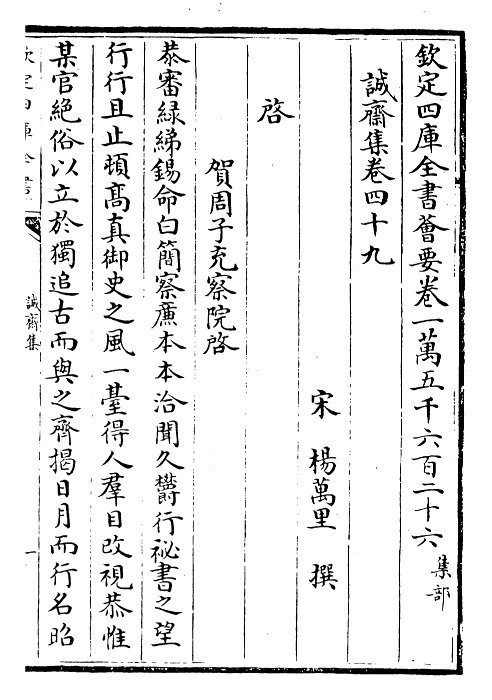 欽定四庫全書薈要卷一萬五千六百二十六 集部
誠齋集卷四十九
宋 楊萬里 撰
啓
賀周子充察院啓
恭審綠綈錫命白簡察廉本本洽聞久欝行祕書之望
行行且止頓髙真御史之風一臺得人羣目改視恭惟
某官絶俗以立於獨追古而與之齊揭日月而行名昭
欽定四庫全書
誠齋集
一